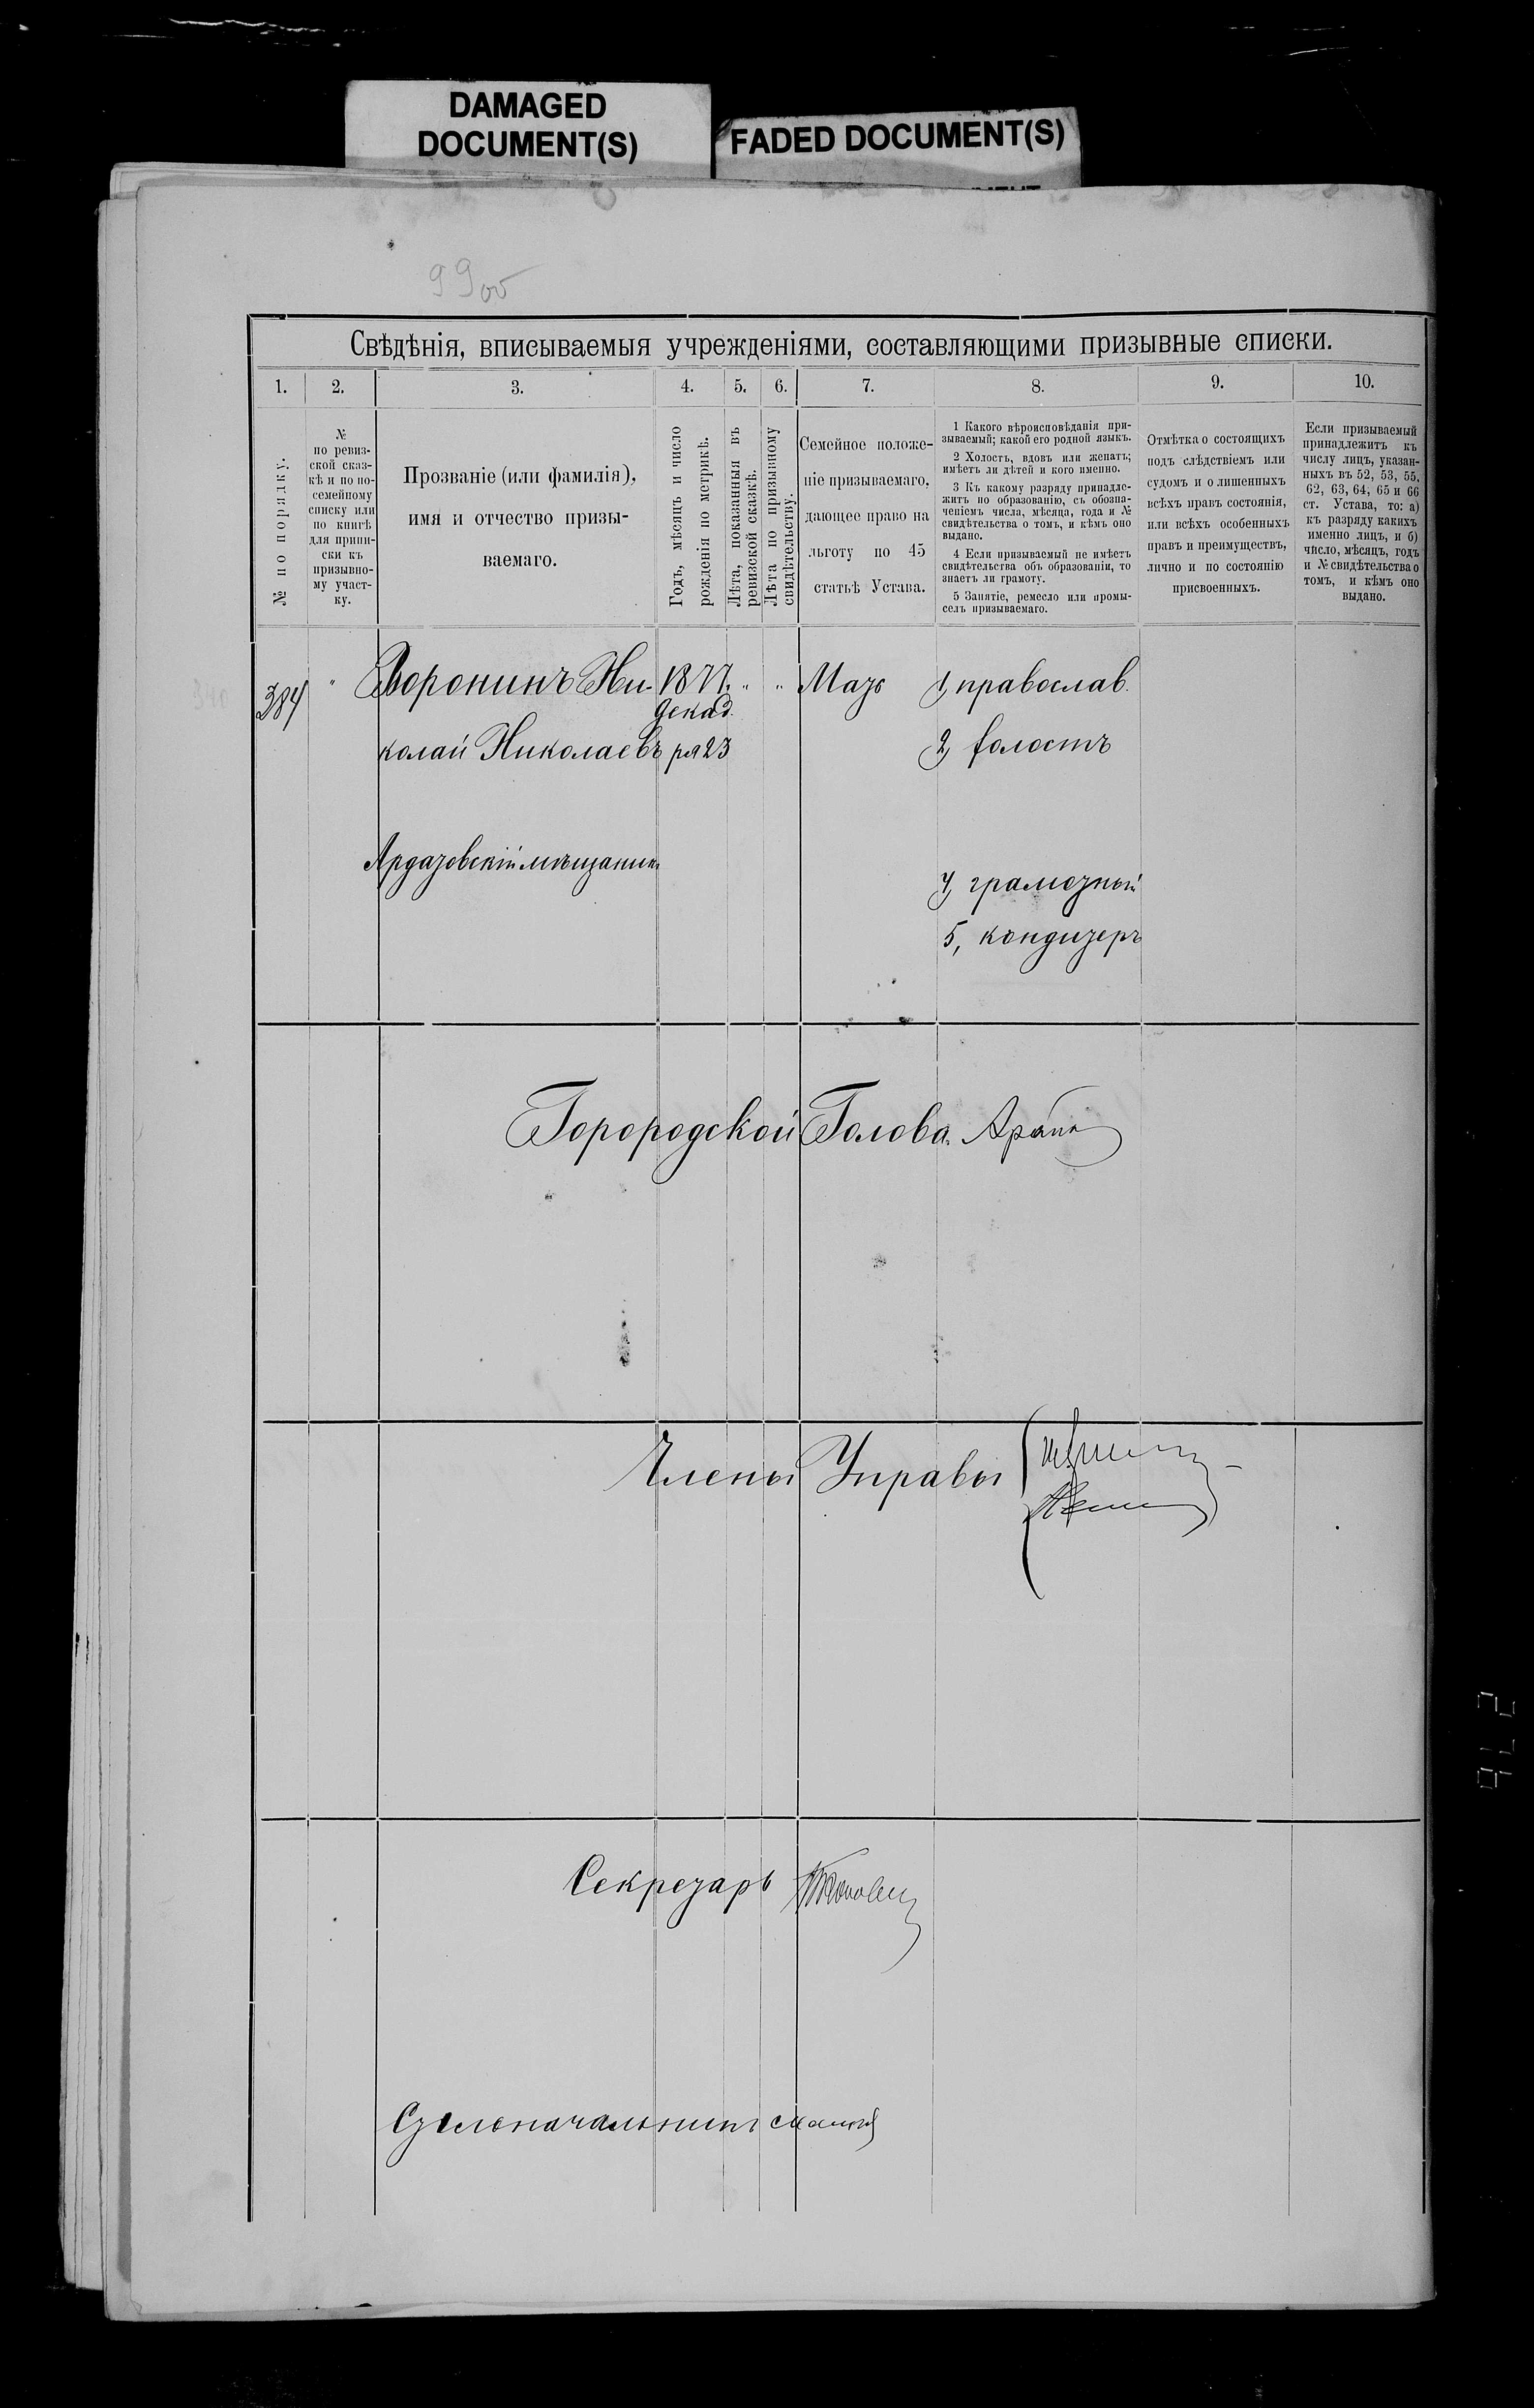 DAMAGED
DOCUMENT(S)
FADED DOCUMENT(S)
99об
Свѣдѣнія, вписываемыя учрежденіями, составляющими призывные списки.
1. 2. 3. 4. 5. 6. 7. 8. 9. 10.
№ по порядку.
№
по ревиз-
ской сказ-
кѣ и по по-
семейному
списку или
по книгѣ
для припи-
ски къ
призывно-
му участ-
ку.
Прозваніе (или фамилія),
имя и отчество призы-
ваемаго.
Годъ, мѣсяцъ и число
рожденія по метрикѣ.
Лѣта, показанныя въ
ревизской сказкѣ.
Лѣта по призывному
свидѣтельству.
Семейное положе-
ніе призываемаго,
дающее право на
льготу по 45
статьѣ Устава.
1 Какого вѣроисповѣданія при-
зываемый; какой его родной языкъ.
2 Холостъ, вдовъ или женатъ;
имѣетъ ли дѣтей и кого именно.
3 Къ какому разряду принадле-
житъ по образованію, съ обозна-
ченіемъ числа, мѣсяца, года и №
свидѣтельства о томъ, и кѣмъ оно
выдано.
4 Если призываемый не имѣетъ
свидѣтельства объ образованіи, то
знаетъ ли грамоту.
5 Занятіе, ремесло или промы-
селъ призываемаго.
Отмѣтка о состоящихъ
подъ слѣдствіемъ или
судомъ и о лишенныхъ
всѣхъ правъ состоянія,
или всѣхъ особенныхъ
правъ и преимуществъ,
лично и по состоянію
присвоенныхъ.
Если призываемый
принадлежитъ къ
числу лицъ, указан-
ныхъ въ 52, 53, 55,
62, 63, 64, 65 и 66
ст. Устава, то: а)
къ разряду какихъ
именно лицъ, и б)
число, мѣсяцъ, годъ
и № свидѣтельства о
томъ, и кѣмъ оно
выдано.
384 " Воронинъ Ни- 1877. " " Мать 1, православ.
Декаб.
колай Николаевъ ря 23 2, холостъ
Ардатовскій мѣщанинъ
4, грамотный
5, кондитеръ
Горородской Голова
Члены Управы
Секретарь
Столоначальникъ